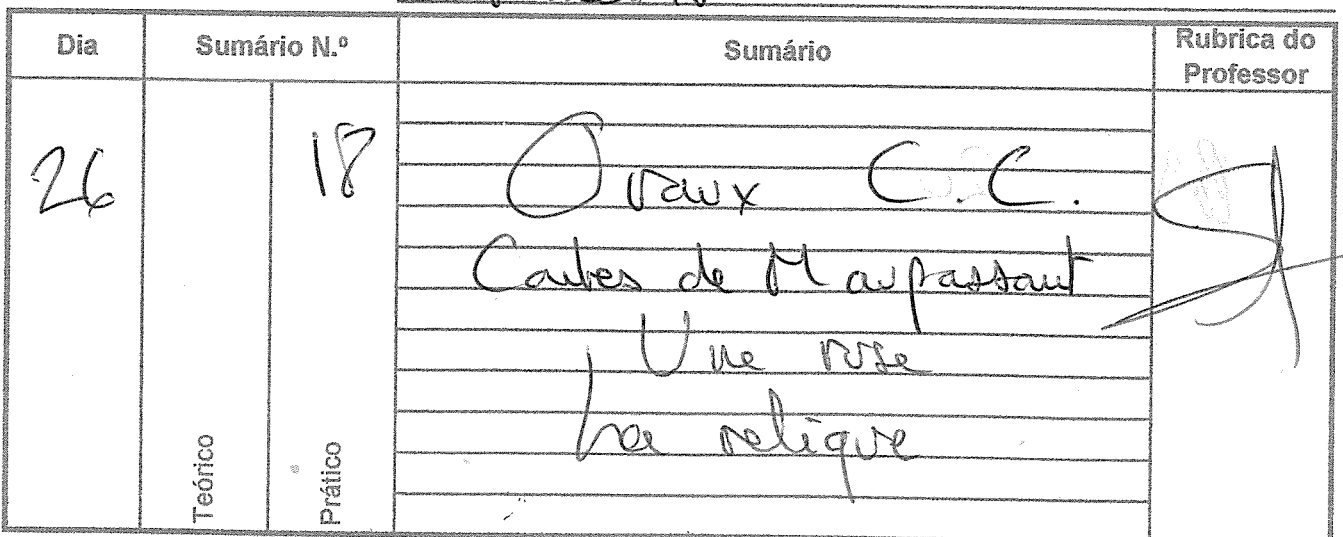 Dia Sumário N.º Sumário Rubrica do Professor
Teórico Prático
26 18 Oraux C.C.
Contes de Maupassant
Une ruse
La relique